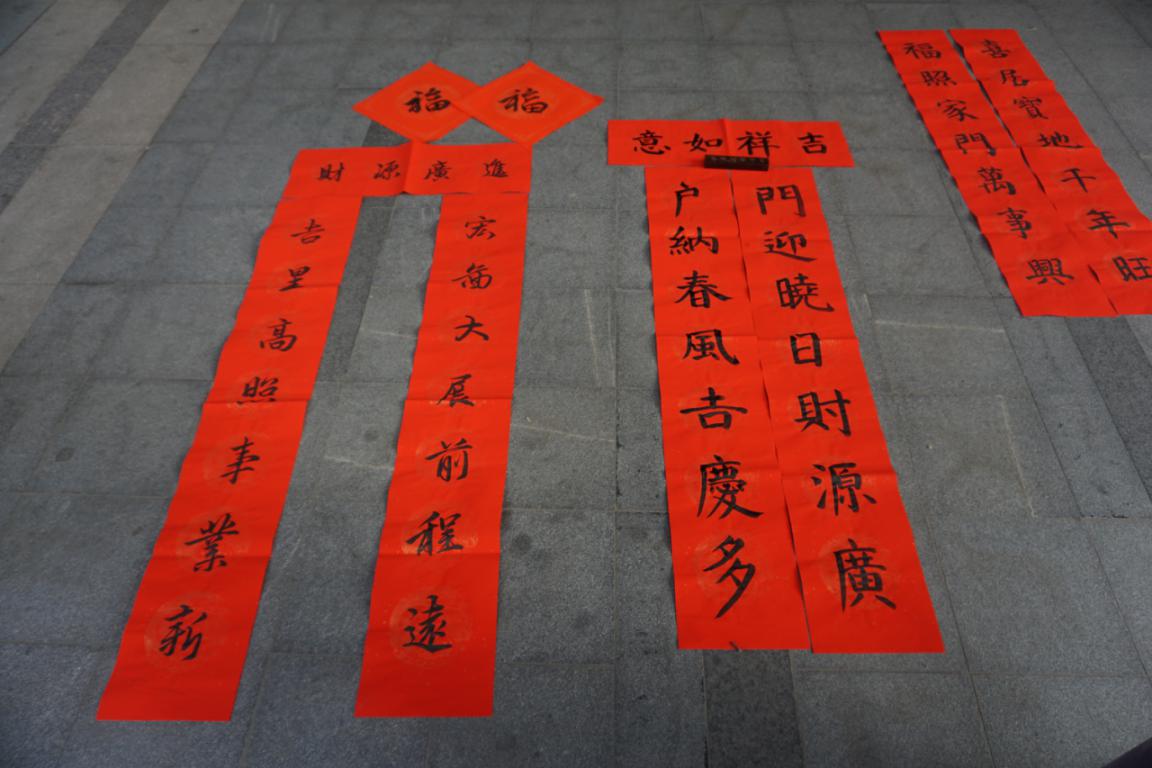 福
福
財源廣進
宏圖大展前程遠
吉星高照事業新
吉祥如意
門迎曉日財源廣
户納春風吉慶多
喜居寶地千年旺
福照家門萬事興